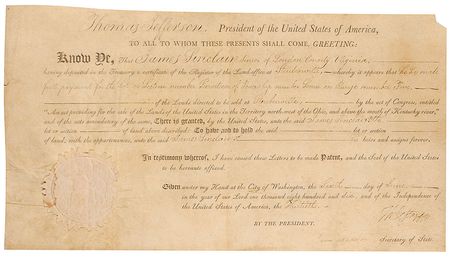 Thomas Jefferson, President of the United States of America,
TO ALL TO WHOM THESE PRESENTS SHALL COME, GREETING:
Know Ye, That James Sinclair of Loudon County Virginia
having deposited in the Treasury a certificate of the Register of the Land-office at Steubenville, whereby it appears that he has made
full payment for the Lot or Section number of Township number in Range number
of the Lands directed to be sold at Steubenville by the act of Congress, entitled
"An act providing for the sale of the Lands of the United States in the Territory north-west of the Ohio, and above the mouth of Kentucky river,"
and of the acts amendatory of the same, There is granted, by the United States, unto the said James Sinclair the
lot or section of land above described: To have and to hold the said lot or section
of land, with the appurtenances, unto the said James Sinclair heirs and assigns forever.
In testimony whereof, I have caused these Letters to be made Patent, and the Seal of the United States
to be hereunto affixed.
Given under my Hand at the City of Washington, the day of
in the year of our Lord one thousand eight hundred and and of the Independence of
the United States of America, the Thirtieth
BY THE PRESIDENT.
Secretary of State.